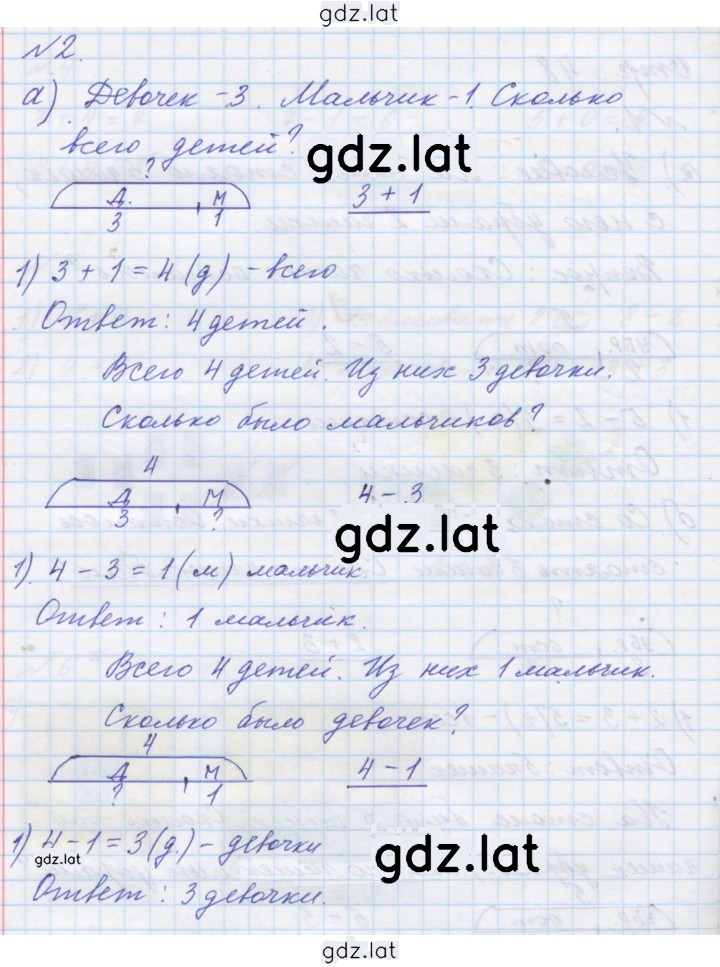 gdz.lat
№2.
а) Девочек - 3. Мальчик - 1. Сколько
всего детей?
gdz.lat
?
Д. М
3 1
3 + 1
1) 3 + 1 = 4 (д) - всего
Ответ: 4 детей.
Всего 4 детей. Из них 3 девочки.
Сколько было мальчиков?
4
Д М
3 ?
4 - 3
gdz.lat
1) 4 - 3 = 1 (м) мальчик.
Ответ: 1 мальчик.
Всего 4 детей. Из них 1 мальчик.
Сколько было девочек?
4
Д М
? 1
4 - 1
1) 4 - 1 = 3 (д.) - девочки
gdz.lat
gdz.lat
Ответ: 3 девочки.
gdz.lat